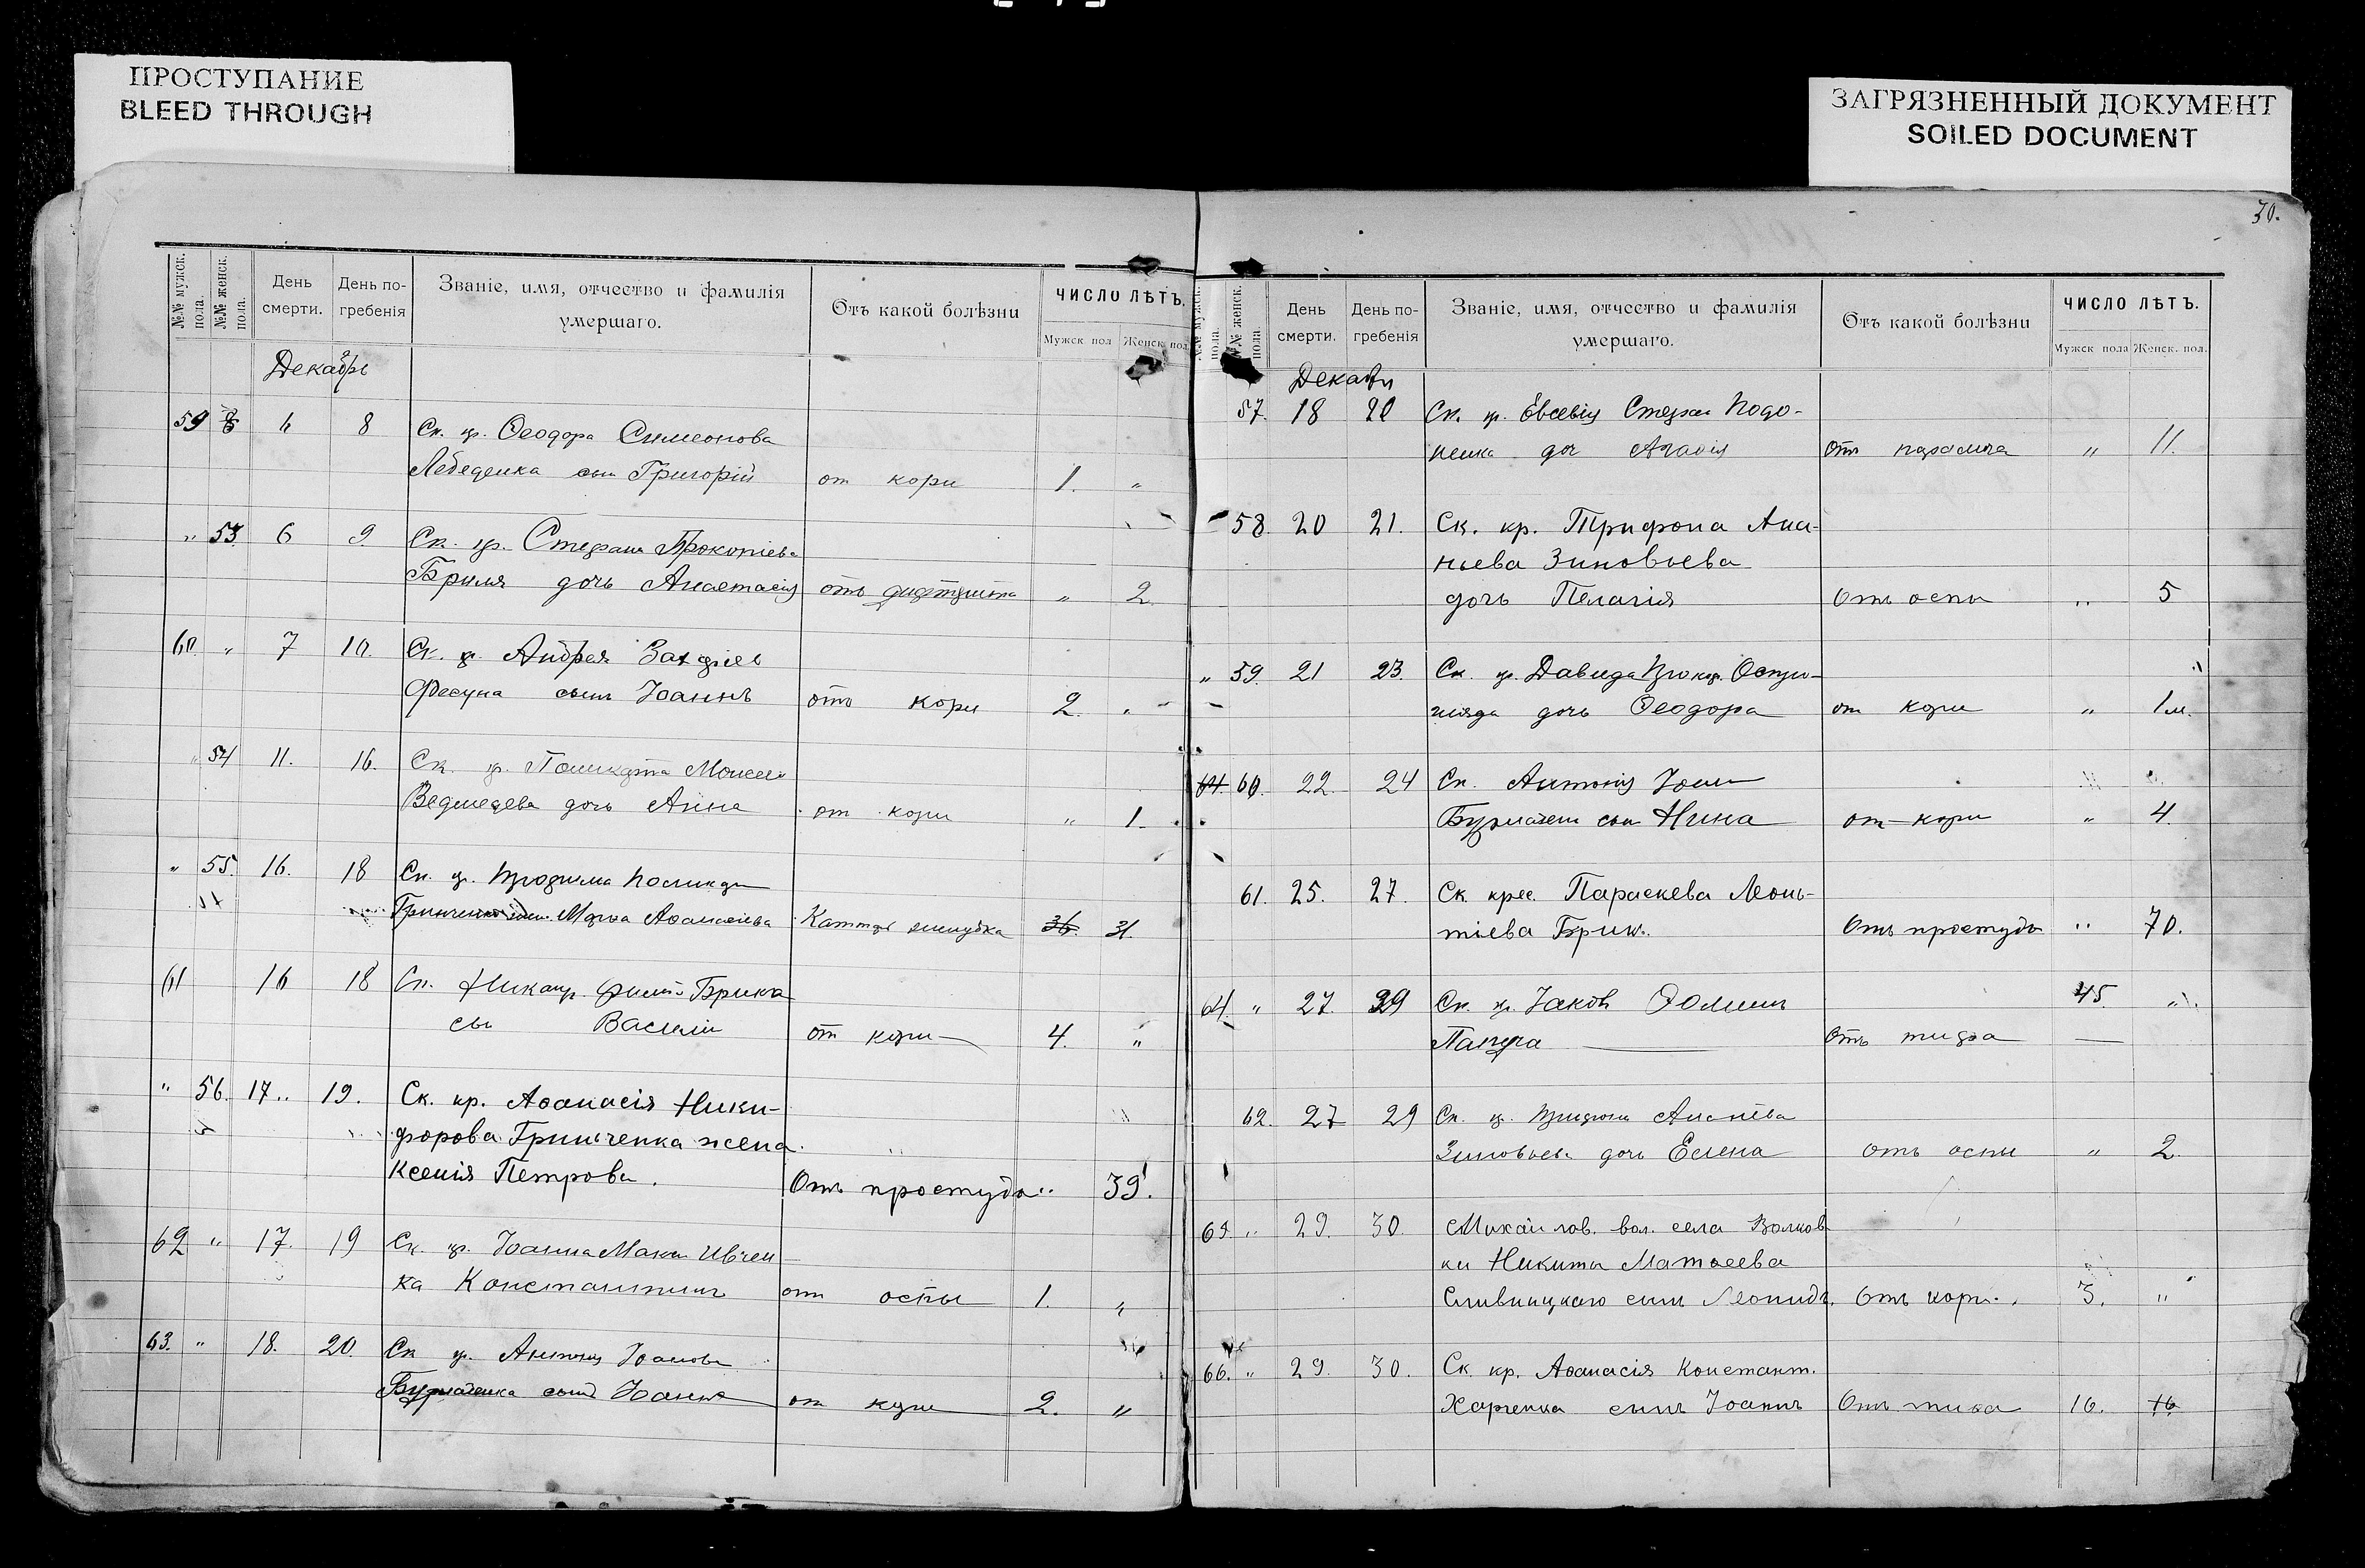 ПРОСТУПАНИЕ
BLEED THROUGH
ЗАГРЯЗНЕННЫЙ ДОКУМЕНТ
SOILED DOCUMENT
30.
№№ мужск. пола.
№№ женск. пола.
День смерти.
День по-гребенія
Званіе, имя, отчество и фамилія умершаго.
Отъ какой болѣзни
ЧИСЛО ЛѢТЪ.
Мужск пол
Женск. пол.
Декабрь
59 6 8 Ск. кр. Ѳеодора Симеонова
Лебеденка сын Григорій от кори 1. "
" 53. 6 9 Ск. кр. Стефана Прокопіева
Бриля дочь Анастасія отъ 2
60. " 7 10. Ск. кр. Андрея
Фесуна сынъ Іоаннъ отъ кори 2. "
" 54 11. 16. Ск. кр. Моисее
Ведмедева дочь Анна от кори " 1.
" 55. 16. 18 Ск. кр.
Марѳа Аѳанасіева Катарръ желудка 31.
61 16 18 Ск. Брика
сын Василій от кори 4. "
" 56. 17.. 19. Ск. кр. Аѳанасія Ники-
форова Гринченка жена
Ксенія Петрова. Отъ простуды .. 39.
62 " 17. 19 Ск. кр. Іоанна Макси Ивчен-
ка Константинъ отъ оспы 1. "
63. " 18. 20. Ск кр. Антонія Іоанова
сынъ Іоаннъ от кори 2. "
№№ мужск. пола.
№№ женск. пола.
День смерти.
День по-гребенія
Званіе, имя, отчество и фамилія умершаго.
Отъ какой болѣзни
ЧИСЛО ЛѢТЪ.
Мужск пола
Женск. пол.
Декабрь
57. 18 20 Ск. кр. Евсевія Стефан Подо-
ненка доч Агаѳія Отъ " 11.
58. 20 21. Ск. кр. Трифона Ана-
ньева Зиновьева
дочь Пелагія Отъ оспы .. 5
" 59. 21 23. Ск. кр. Давида Прокоф.
дочь Ѳеодора от кори " 1 м.
60. 22. 24 Ск. Антонія Іоан
Нина от кори " 4.
61. 25. 27. Ск. крес. Параскева Леон-
тіева Брик. Отъ простуды .. 70.
64. " 27. 29 Ск. кр. Іаковъ
Отъ тифа 45. "
62. 27 29 Ск. кр. Трифона Ананіева
Зиновьева дочь Елена отъ оспы " 2.
65. " 29. 30. Михайлов. вол. села Волков-
ки Никиты Матѳеева
Сливницкаго сынъ Леонидъ. Отъ кори. 3. "
66. " 29. 30. Ск. кр. Аѳанасія Констант.
Харченка сынъ Іоаннъ Отъ тифа 16.